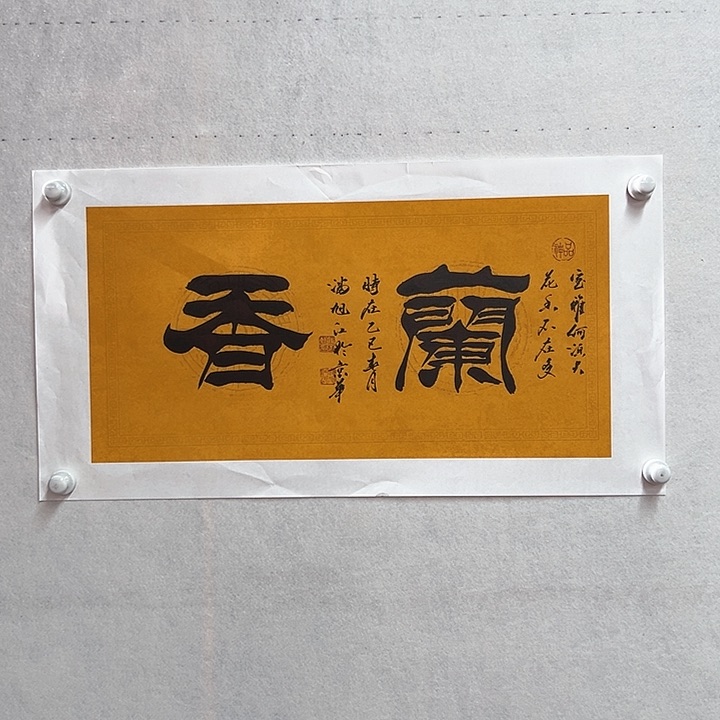 室雅何須大
花香不在多
蘭
時在乙巳春月
旭江於京華
香